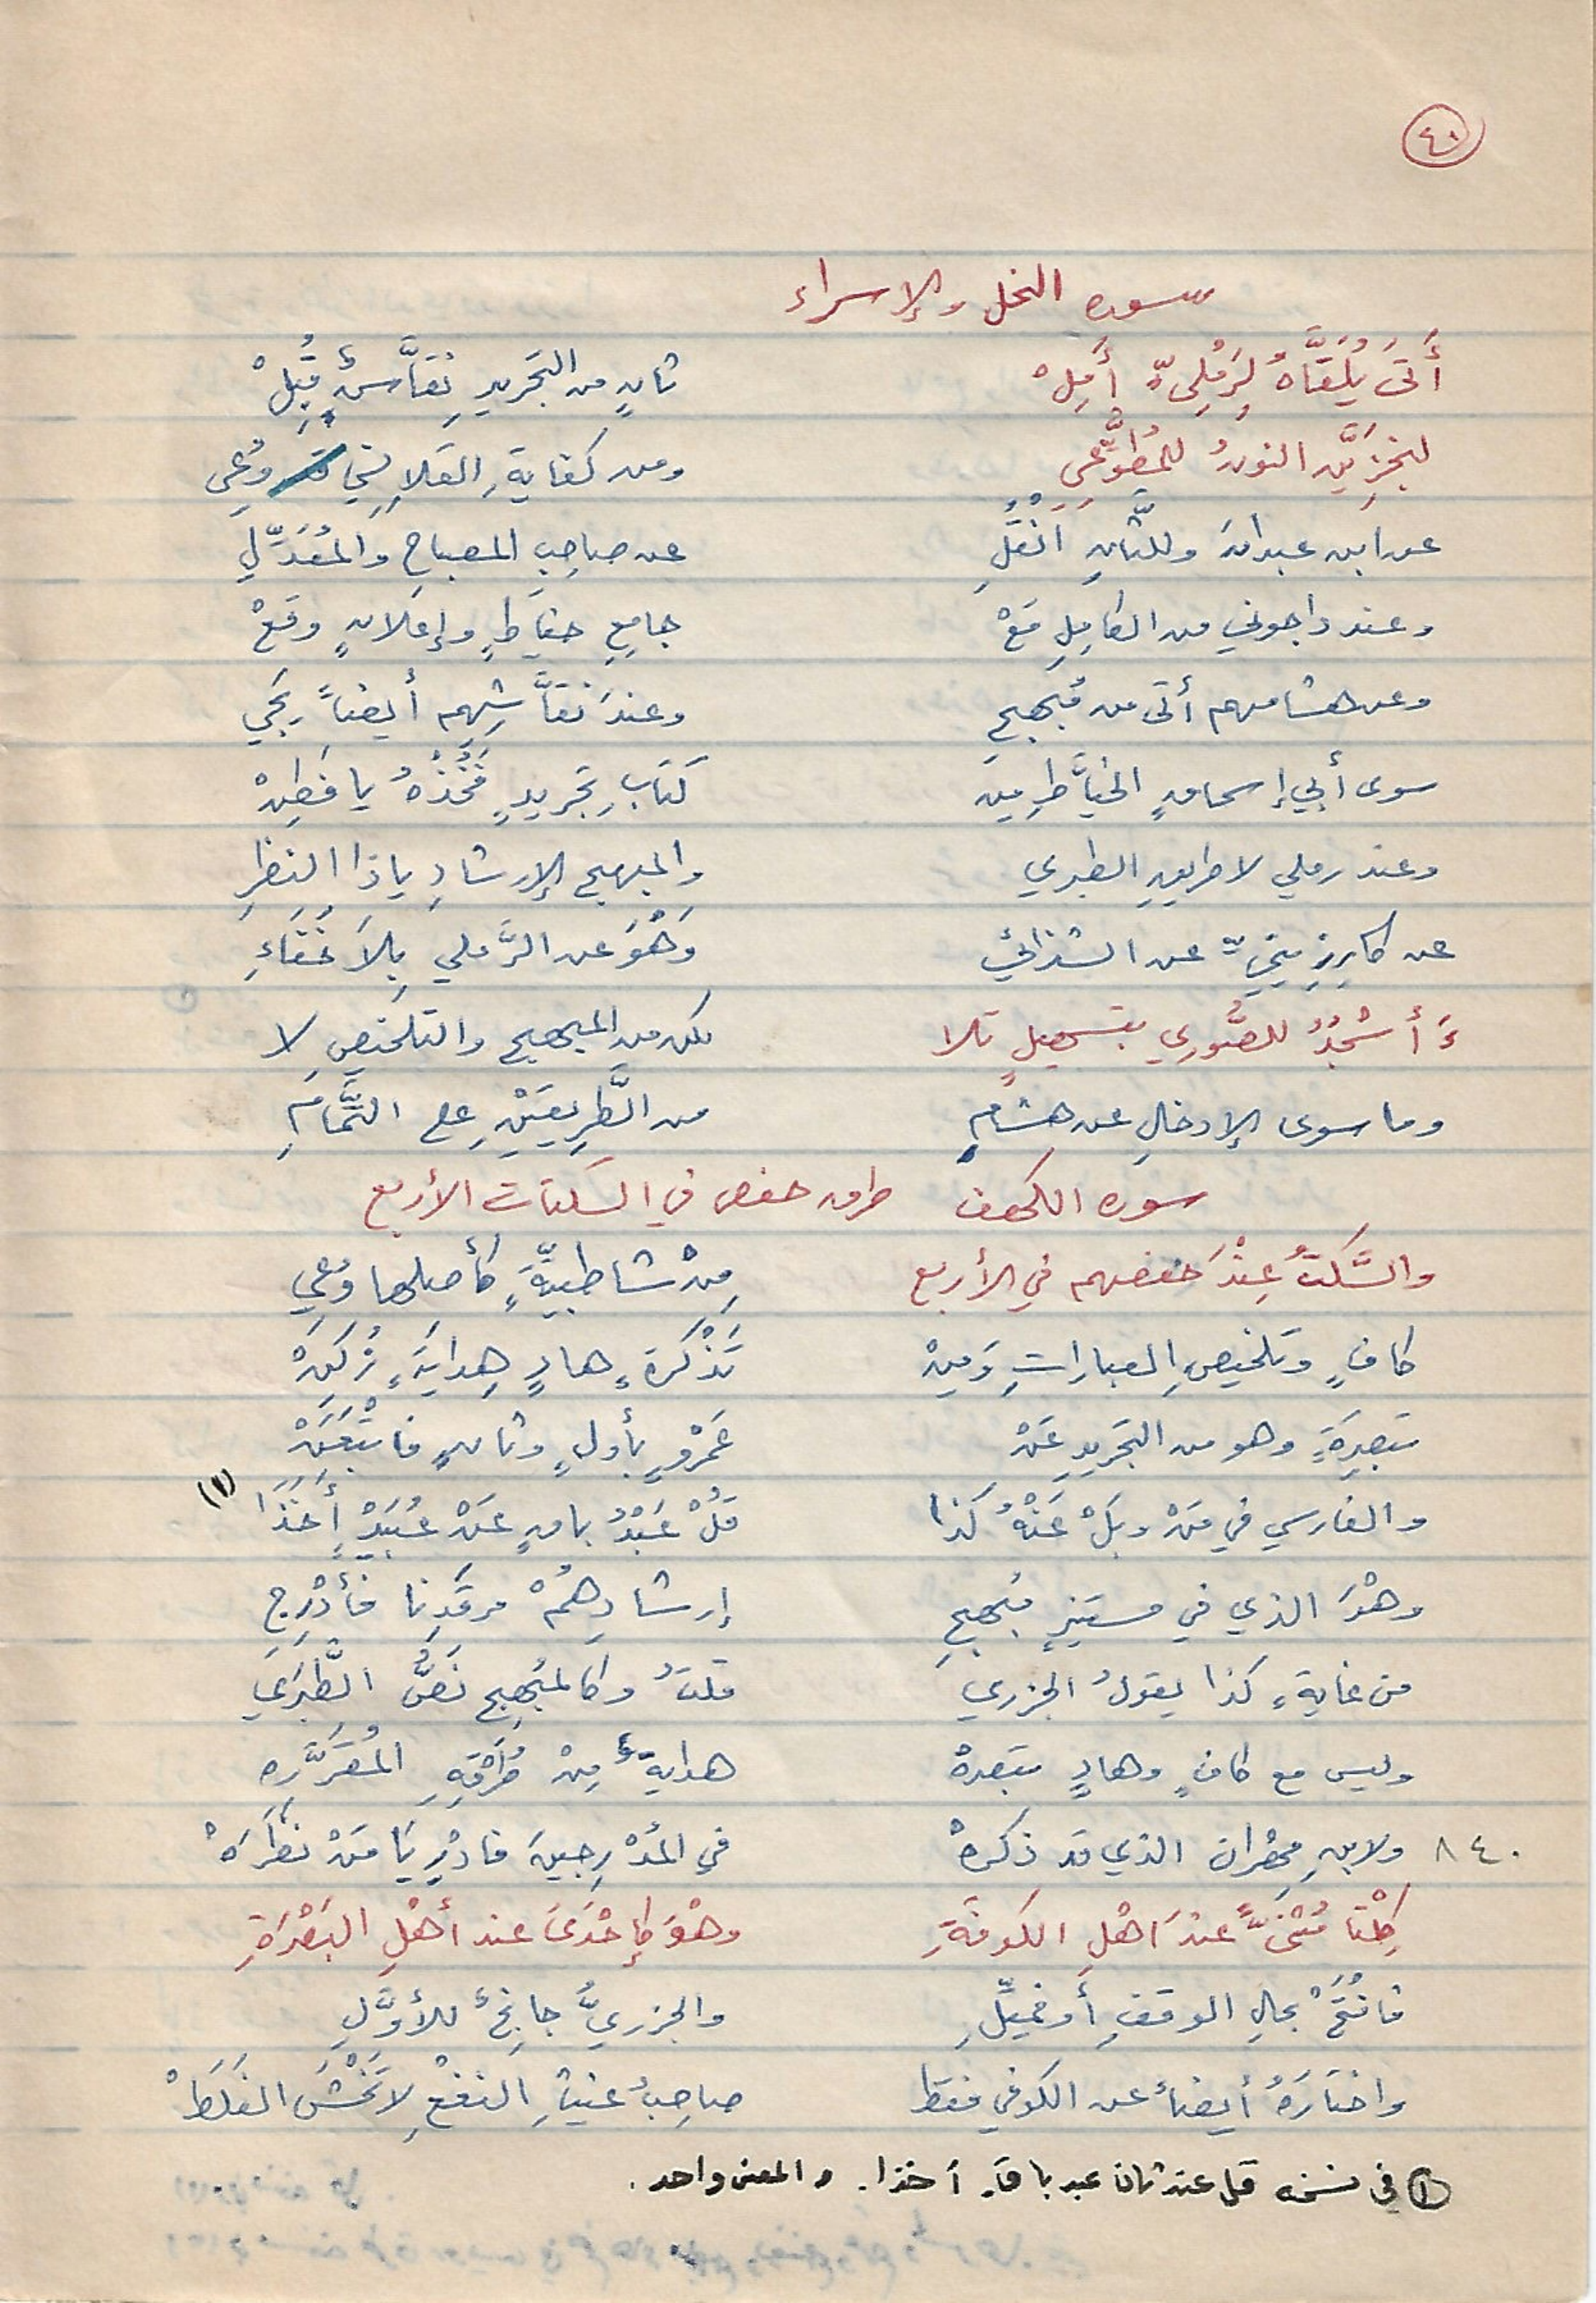 ٤٠
سورة النحل والإسراء
أَتَى يُلَقَّاهُ لِرَمْلِيٍّ أَمِلْ ثانٍ من التجريدِ نقَّاشٌ قُبِلْ
لنجزِيَنَّ النونُ للمُطوِّعِي ومن كفايةِ القلانِسِي وُعِي
عن ابن عبدان وللثَّانِ انْقُلِ عن صاحِبِ المصباحِ والمُعَدَّلِ
وعند داجوني من الكامِلِ مَعْ جامِعِ خيَّاطٍ وإعلانٍ وقَعْ
وعن هشامهم أتى من مُبْهِجِ وعندَ نَقَّاشِهِم أيضاً يَجِي
سوى أبي إسحاقٍ الخيَّاطِ مِن كتابِ تجريدٍ فَخُذْهُ يا فَطِنْ
وعند رملي لا طريقِ الطبري والمبهج الإرشادِ ياذا النظرِ
عن كارِزِينِيٍّ عن الشذائي وَهْوَ عن الرَّملي بِلاَ خَفَاءِ
ءَأَسْجُدُ للصُّوري بتسهيلٍ تلا لكن من المبهج والتلخيصِ لا
وما سوى الإدخالِ عن هشامِ من الطَّرِيقَيْنِ على التَّمَامِ
سورة الكهف طرق حفص في السكتات الأربع
والسَّكتُ عِنْدَ حفصهم في الأربع مِنْ شاطبيَّةٍ كأصلها وُعِي
كافٍ وتلخيصِ العباراتِ وَمِنْ تَذْكِرَةٍ هادٍ هِدايَةٍ زُكِنْ
تبصِرَةٍ وهو من التجريدِ عَنْ عَمْرٍو بأولٍ وثانٍ فاتْبَعَنْ
والفارسي في مَنْ وبَلْ عَنْهُ كَذا قُلْ عَبْدُ باقٍ عَنْ عُبَيْدٍ أَخَذَا (١)
وهْوَ الذي في مستنيرٍ مُبْهِجِ إرشادِهِمُ مرقَدِنا فأَدْرِجِ
من غايةٍ كذا يقولُ الجزري قلتُ وكالمُبْهِجِ نَصُّ الطَّبَرِي
وليس مع كافٍ وهادٍ تبصرهْ هدايةٌ مِنْ طُرْقِهِ المُقَرَّرِه
٨٤٠ ولابنِ مِهْرانَ الذي قد ذكرهْ في المُدْرِجِينَ فادْرِ يَا مَنْ نَظَرَهْ
كِلْتا مُثَنًّى عندَ اهْلِ الكوفَةِ وهْوَ كإِحْدَى عند أهْلِ البَصْرَةِ
فافْتَحْ بحالِ الوقفِ أو فمَيِّلِ والجزريُّ جانِحٌ للأوَّلِ
واختَارَهُ أيضاً عن الكوفي فقط صاحِبُ غيثِ النفْعِ لا تَخْشَ الغَلَطْ
(١) في نسخة قل عند ثان عبد باق أخذا. والمعنى واحد.